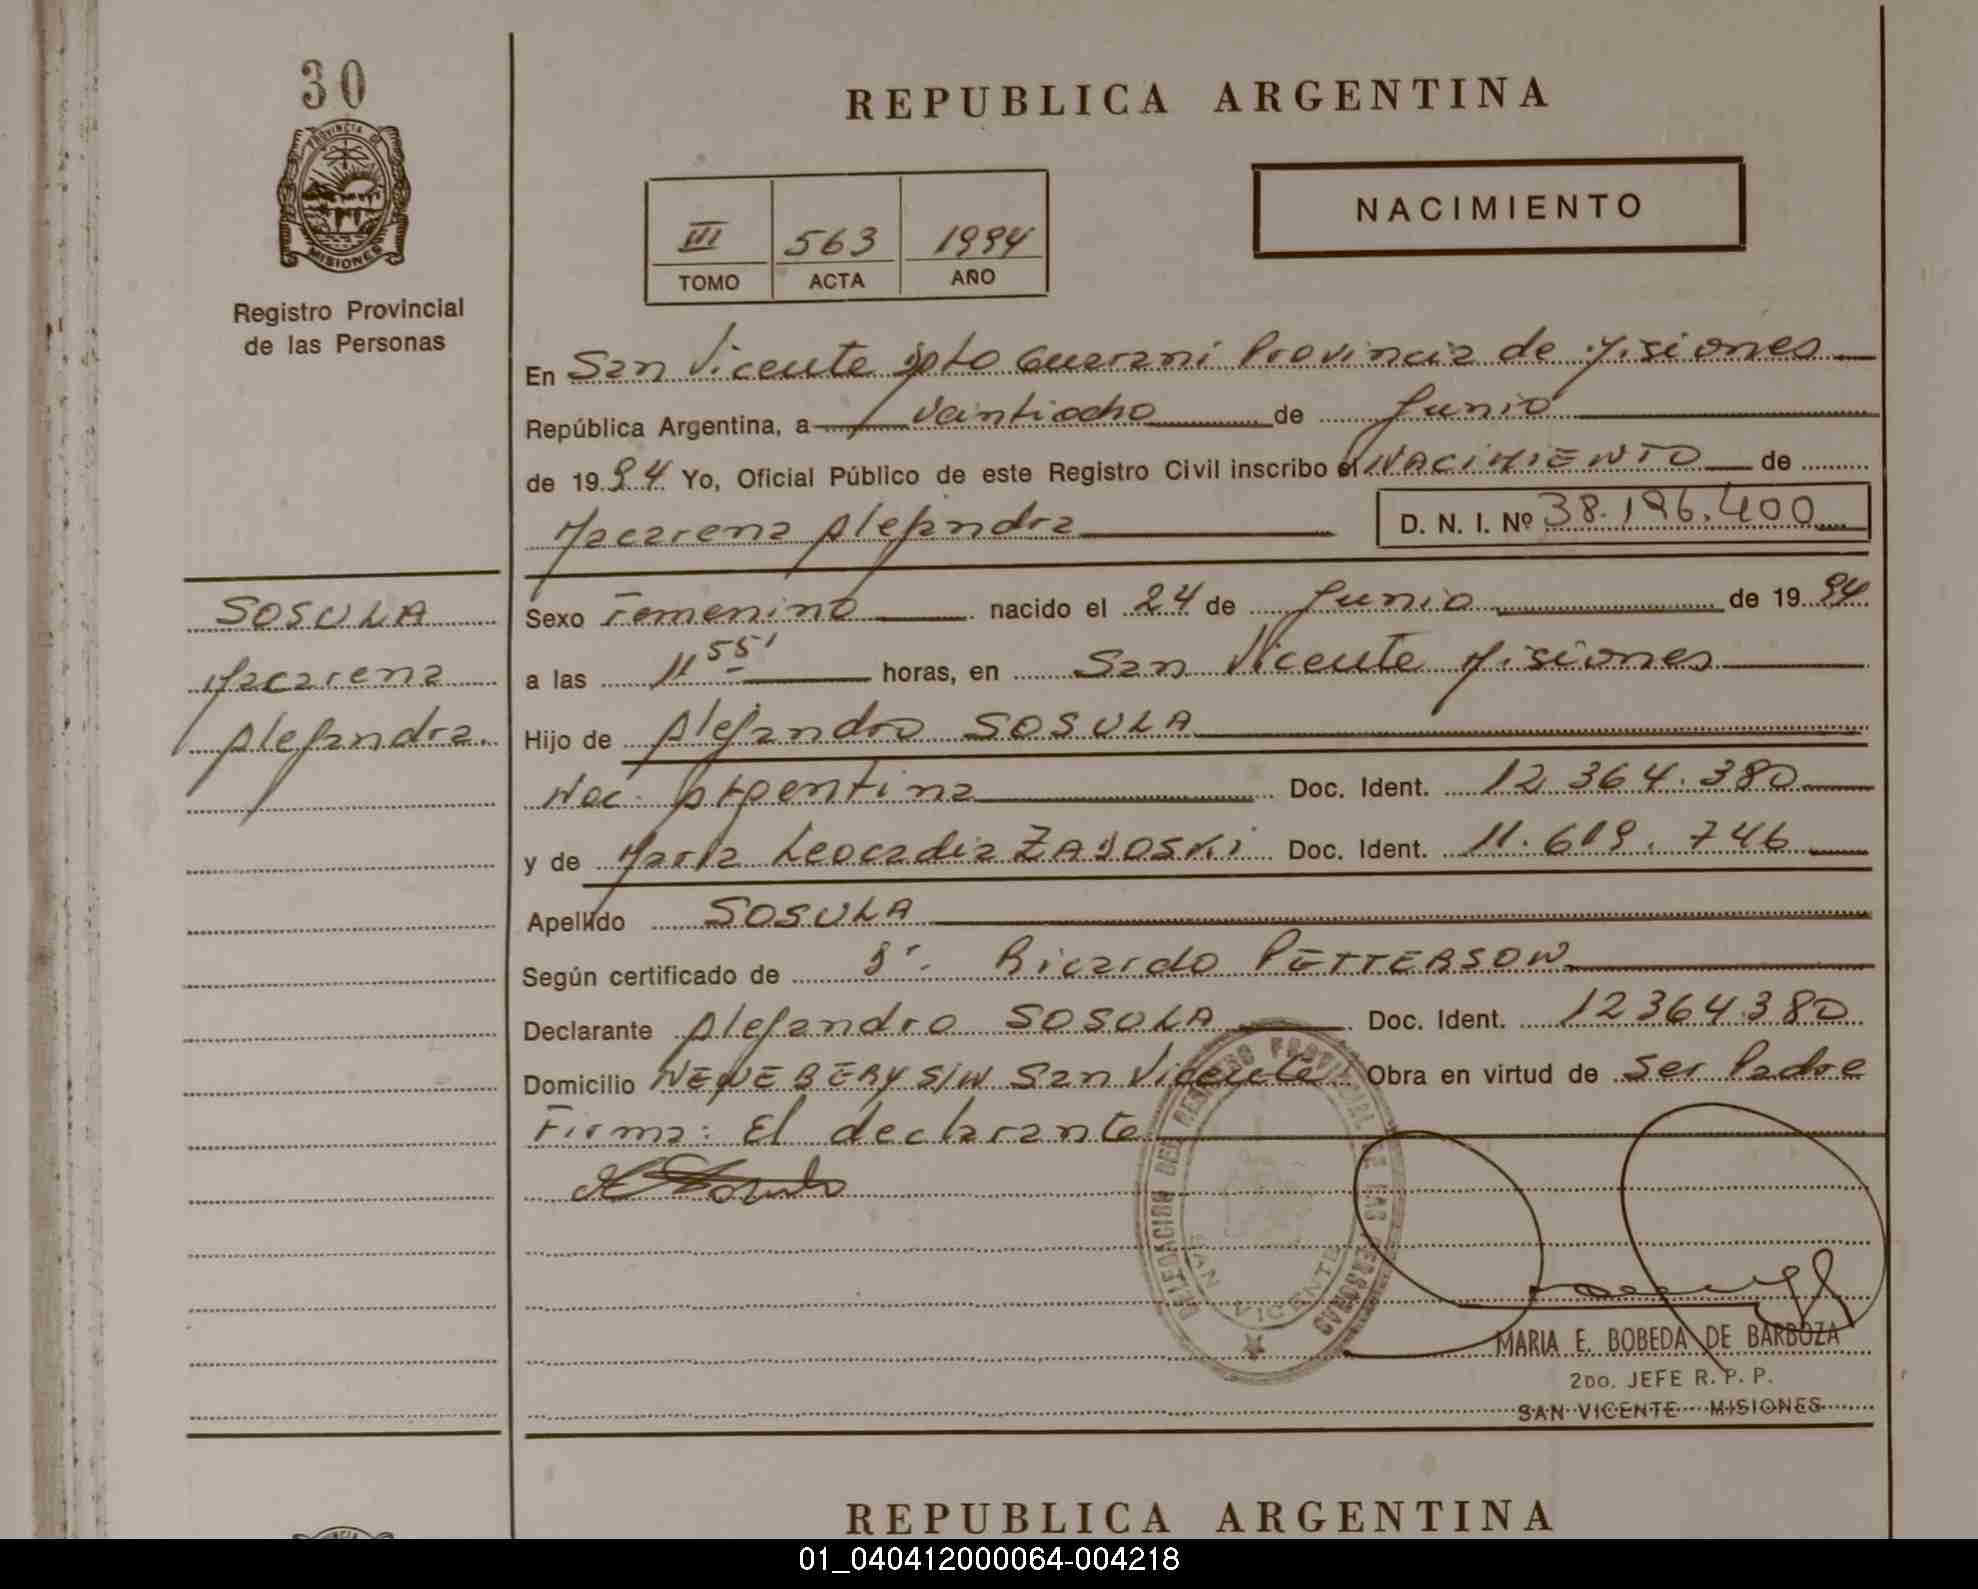 30
PROVINCIA DE
MISIONES
Registro Provincial
de las Personas
REPUBLICA ARGENTINA
NACIMIENTO
III 563 1994
TOMO ACTA AÑO
En San Vicente Dpto Guarani Provincia de Misiones
República Argentina, a Veintiocho de Junio
de 1994 Yo, Oficial Público de este Registro Civil inscribo el NACIMIENTO de
Macarena Alejandra D. N. I. Nº 38.196.400
SOSULA
Macarena
Alejandra.
Sexo Femenino nacido el 24 de Junio de 1994
a las 11 55' horas, en San Vicente Misiones
Hijo de Alejandro SOSULA
Nac. Argentina Doc. Ident. 12 364.380
y de Maria Leocadia ZADOSKi Doc. Ident. 11.619.746
Apellido SOSULA
Según certificado de Dr. Ricardo PETTERSON
Declarante Alejandro SOSULA Doc. Ident. 12364.380
Domicilio NEWEBERY S/N San Vicente Obra en virtud de Ser Padre
Firma: El declarante
DELEGACION DEL REGISTRO PROVINCIAL DE LAS PERSONAS
SAN VICENTE
MARIA E. BOBEDA DE BARBOZA
2DO. JEFE R. P. P.
SAN VICENTE MISIONES
REPUBLICA ARGENTINA
01_040412000064-004218